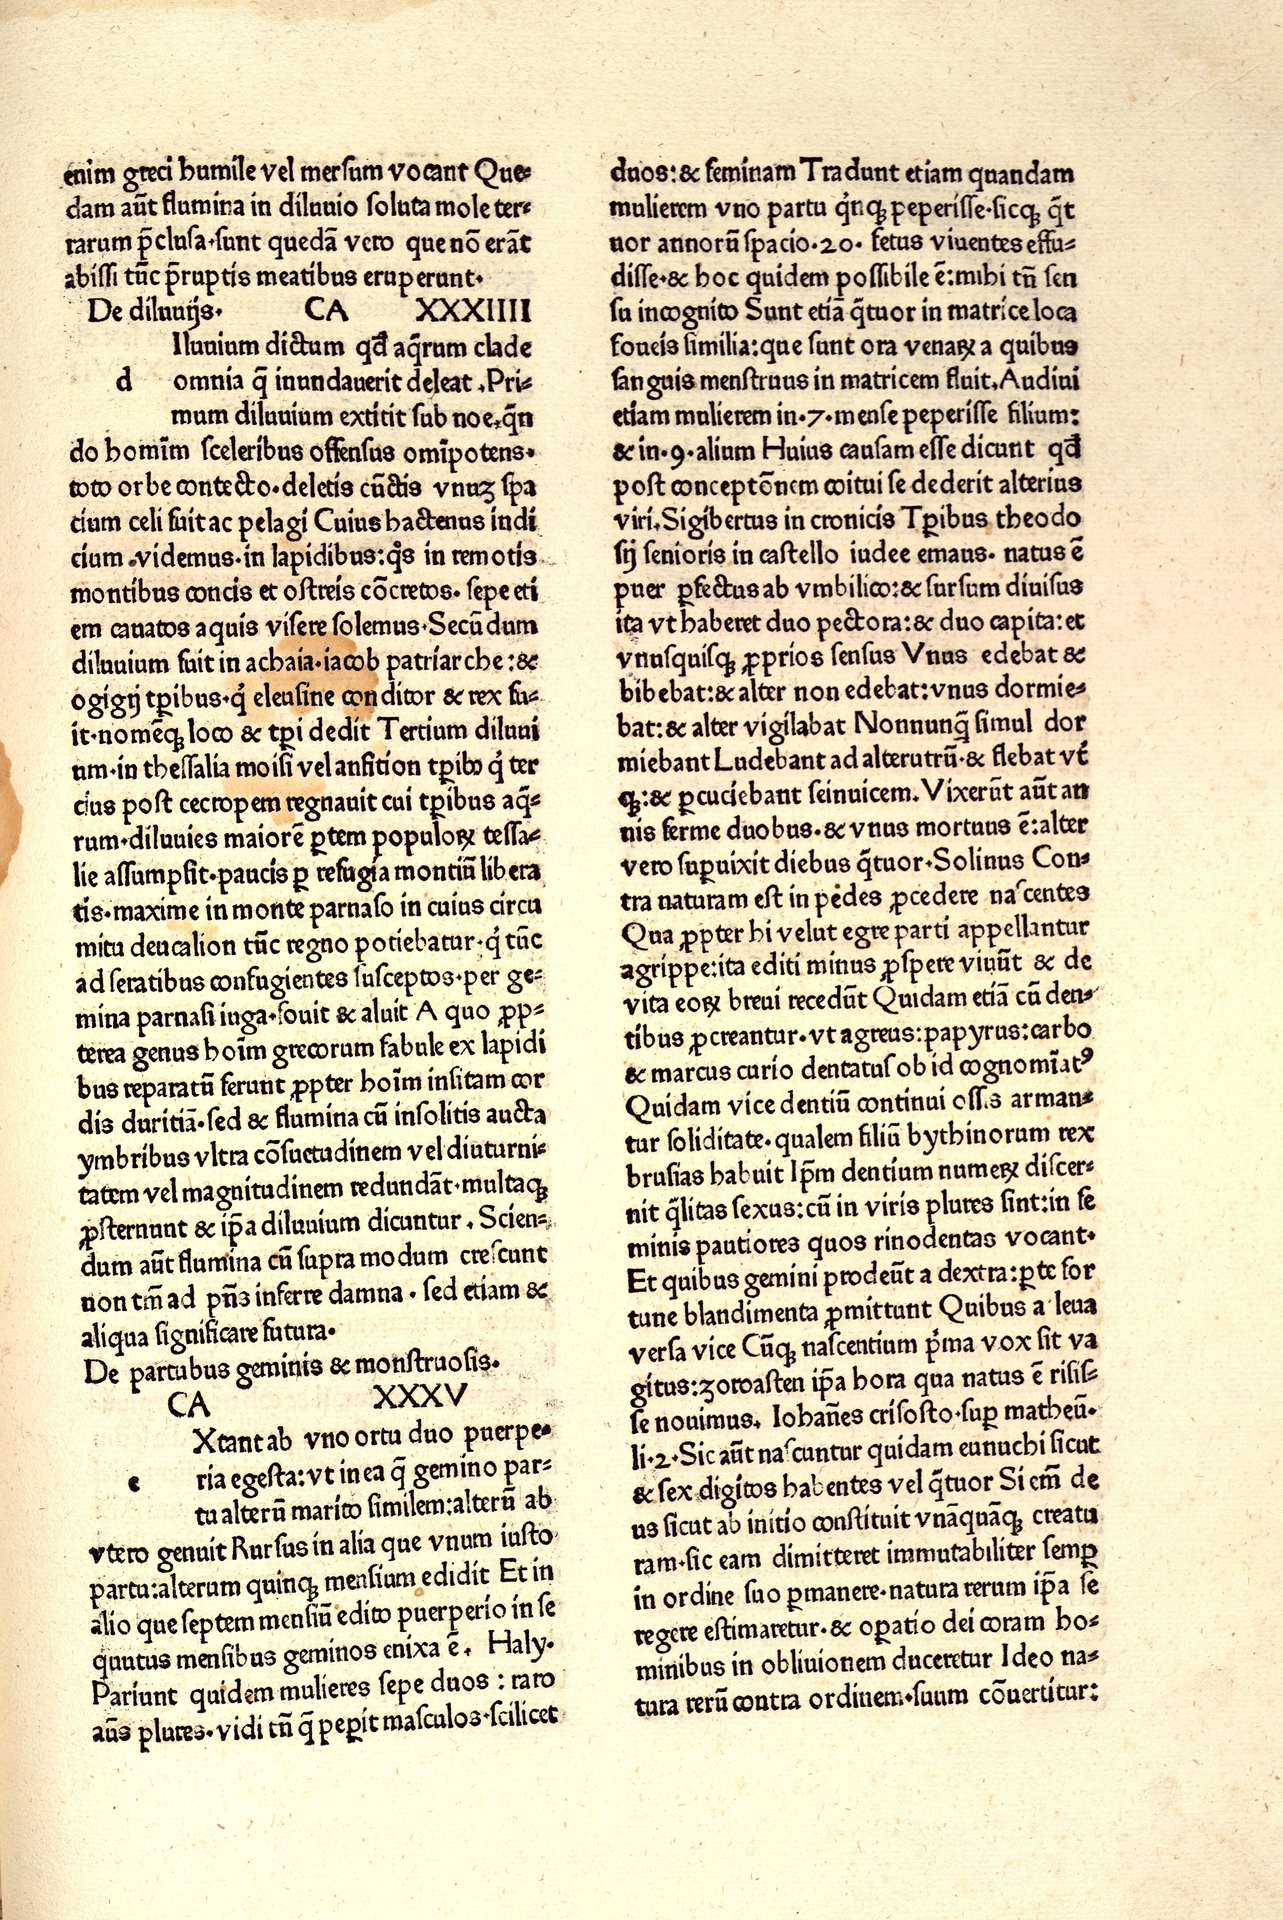 enim greci humile vel mersum vocant Que⸗
dam aūt flumina in diluuio soluta mole ter⸗
rarum p̄clusa·sunt quedā vero que nō erāt
abissi tūc p̄ruptis meatibus eruperunt·
De diluuijs· CA XXXIIII
Iluuium dictum qđ aq̄rum clade
d omnia q̄ inundauerit deleat .Pri⸗
mum diluuium extitit sub noe,q̄n
do homīm sceleribus offensus omīpotens·
toto orbe contecto·deletis cūctis vnuꝫ spa
cium celi fuit ac pelagi Cuius hactenus indi
cium .videmus·in lapidibus:q̄s in remotis
montibus concis et ostreis cōcretos· sepe eti
em cauatos aquis visere solemus·Secūdum
diluuium fuit in achaia·iacob patriarche:&
ogigij tꝑibus·q̇ eleusine conditor & rex fu⸗
it·nomēqꝫ loco & tꝑi dedit Tertium diluui
um·in thessalia moisi vel anfition tꝑibꝰ q̇ ter
cius post cecropem regnauit cui tꝑibus aq̄⸗
rum·diluuies maiorē ꝑtem populoꝝ tessa⸗
lie assumpsit·paucis ꝑ refugia montiū libera
tis·maxime in monte parnaso in cuius circu
mitu deucalion tūc regno potiebatur·q̇ tūc
ad se ratibus confugientes susceptos·per ge⸗
mina parnasi iuga·fouit & aluit A quo ꝓp⸗
terea genus hoīm grecorum fabule ex lapidi
bus reparatū ferunt ꝓpter hoīm insitam cor
dis duritiā·sed & flumina cū insolitis aucta
ymbribus vltra cōsuetudinem vel diuturni⸗
tatem vel magnitudinem redundāt·multaqꝫ
ꝓsternunt & ip̄a diluuium dicuntur . Scien⸗
dum aūt flumina cū supra modum crescunt
non tm̄ ad p̄ns inferre damna · sed etiam &
aliqua significare futura·
De partubus geminis & monstruosis·
CA XXXV
Xtant ab vno ortu duo puerpe⸗
e ria egesta:vt in ea q̄ gemino par⸗
tu alterū marito similem:alterū ab
vtero genuit Rursus in alia que vnum iusto
partu:alterum quinqꝫ mensium edidit Et in
alio que septem mensiū edito puerperio in se
quutus mensibus geminos enixa ē. Haly·
Pariunt quidem mulieres sepe duos : raro
aūs plures·vidi tn̄ q̄ peꝑit masculos·scilicet
duos:& feminam Tradunt etiam quandam
mulierem vno partu q̇nqꝫ peperisse·sicqꝫ q̄t
uor annorū spacio·20· fetus viuentes effu⸗
disse·& hoc quidem possibile ē:mihi tn̄ sen
su incognito Sunt etiā q̄tuor in matrice loca
foueis similia:que sunt ora venaꝝ a quibus
sanguis menstruus in matricem fluit.Audiui
etiam mulierem in·7·mense peperisse filium:
& in·9·alium Huius causam esse dicunt qđ
post conceptōnem coitui se dederit alterius
viri.Sigibertus in cronicis Tꝑibus theodo
sij senioris in castello iudee emaus· natus ē
puer ꝑfectus ab vmbilico:& sursum diuisus
ita vt haberet duo pectora:& duo capita:et
vnusquisqꝫ ꝓprios sensus Vnus edebat &
bibebat:& alter non edebat:vnus dormie⸗
bat:& alter vigilabat Nonnunq̄ simul dor
miebant Ludebant ad alterutrū·& flebat vt̄
qꝫ:& ꝑcuciebant seinuicem. Vixerūt aūt an
nis ferme duobus·& vnus mortuus ē:alter
vero suꝑuixit diebus q̄tuor·Solinus Con⸗
tra naturam est in pedes ꝓcedere nascentes
Qua ꝓpter hi velut egre parti appellantur
agrippe:ita editi minus ꝓspere viuūt & de
vita eoꝝ breui recedūt Quidam etiā cū den⸗
tibus ꝓcreantur·vt agreus:papyrus:carbo
& marcus curio dentatus ob id cognomīatꝰ
Quidam vice dentiū continui ossis arman⸗
tur soliditate·qualem filiū bythinorum rex
brusias habuit Ip̄m dentium numeꝝ discer⸗
nit q̄litas sexus:cū in viris plures sint:in fe
minis pautiores quos rinodentas vocant·
Et quibus gemini prodeūt a dextra:ꝑte for
tune blandimenta ꝓmittunt Quibus a leua
versa vice Cūqꝫ nascentium p̍ma vox sit va
gitus:zoroasten ip̄a hora qua natus ē risis⸗
se nouimus. Iohan̄es crisosto·suꝑ matheū·
li·2·Sic aūt nascuntur quidam eunuchi sicut
& sex digitos habentes vel q̄tuor Si em̄ de
us sicut ab initio constituit vnāquāqꝫ creatu
ram·sic eam dimitteret immutabiliter semꝑ
in ordine suo ꝑmanere·natura rerum ip̄a se
regere estimaretur·& oꝑatio dei coram ho⸗
minibus in obliuionem duceretur Ideo na⸗
tura rerū contra ordinem·suum cōuertitur: